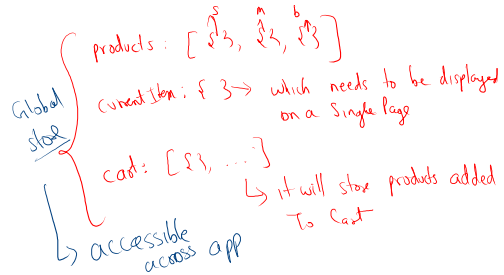 s m b
products : [ { }, { }, { } ]
Global
store
currentItem : { } → which needs to be displayed
on a Single Page
cart : [ { }, .... ]
it will store products added
To Cart
accessible
across app